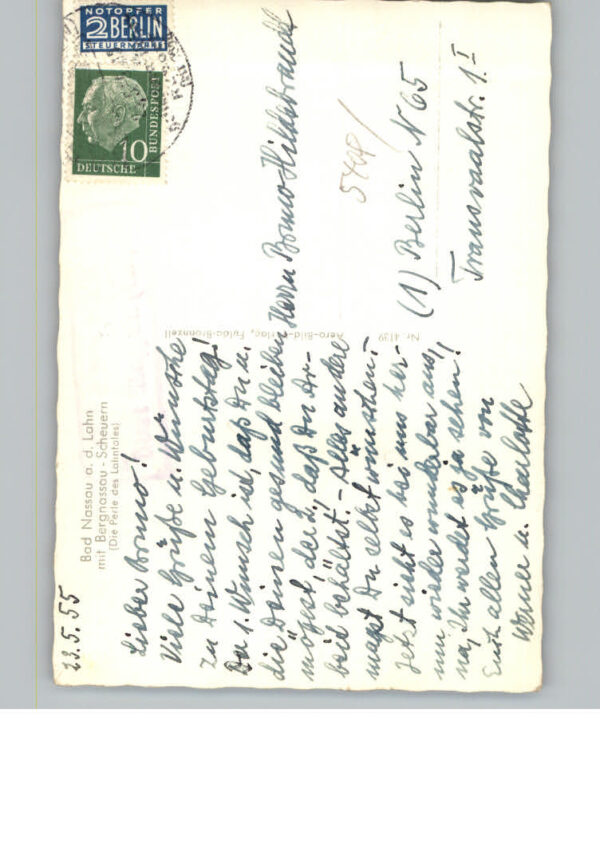 NOTOPFER
2 BERLIN
STEUERMARKE
10
DEUTSCHE
BUNDESPOST
Bad Nassau a. d. Lahn
mit Bergnassau - Scheuern
(Die Perle des Lahntales)
23.5.55
Lieber Bruno!
Viele Grüße u. Wünsche
zu Deinem Geburtstag!
Der 1. Wunsch ist, daß Du u.
die Deinen gesund bleiben
mögest, der 2., daß Du Ar-
beit behältst. - Alles andere
magst Du selbst wünschen. -
Jetzt sieht es bei uns her-
um wieder wunderbar aus,
na, Ihr werdet es ja sehen!
Euch allen Grüße von
Werner u. Charlotte
Aero-Bild-Verlag, Fulda-Bronnzell
Nr. 4139
Herrn Bruno Hildebrandt
(1) Berlin N 65
Transvaalstr. 1 I